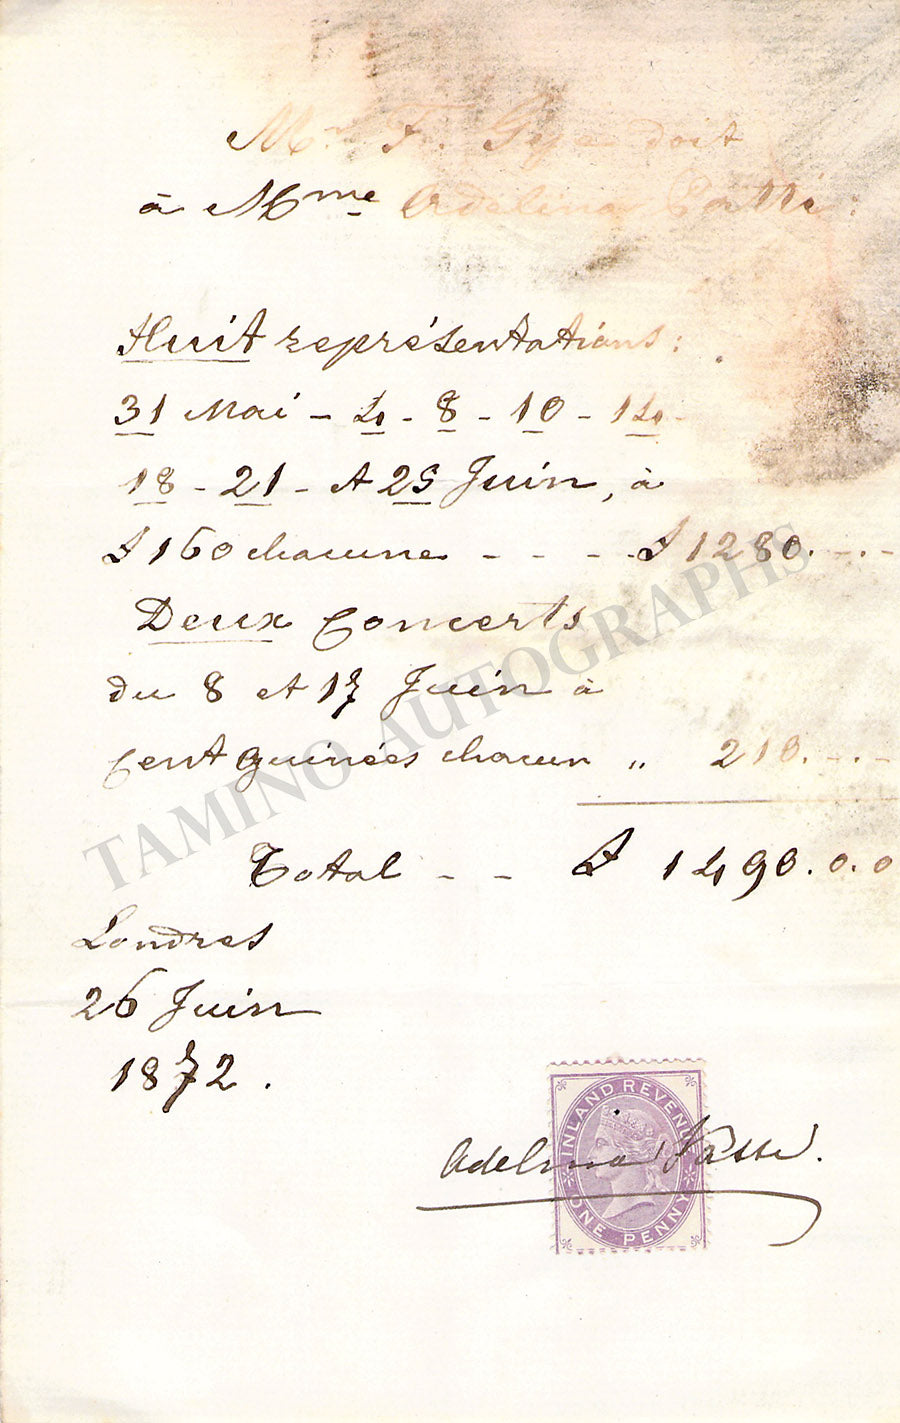 Mr F. Gye doit
à Mme Adelina Patti:
Huit représentations:
31 Mai - 4 - 8 - 10 - 14 -
18 - 21 - et 25 Juin, à
£ 160 chacune - - - - £ 1280. - . -
Deux Concerts
du 8 et 17 Juin à
Cent guinées chacun " 210. - . -
Total - - £ 1490.0.0
Londres
26 Juin
1872.
INLAND REVENUE
ONE PENNY
Adelina Patti.
TAMINO AUTOGRAPHS